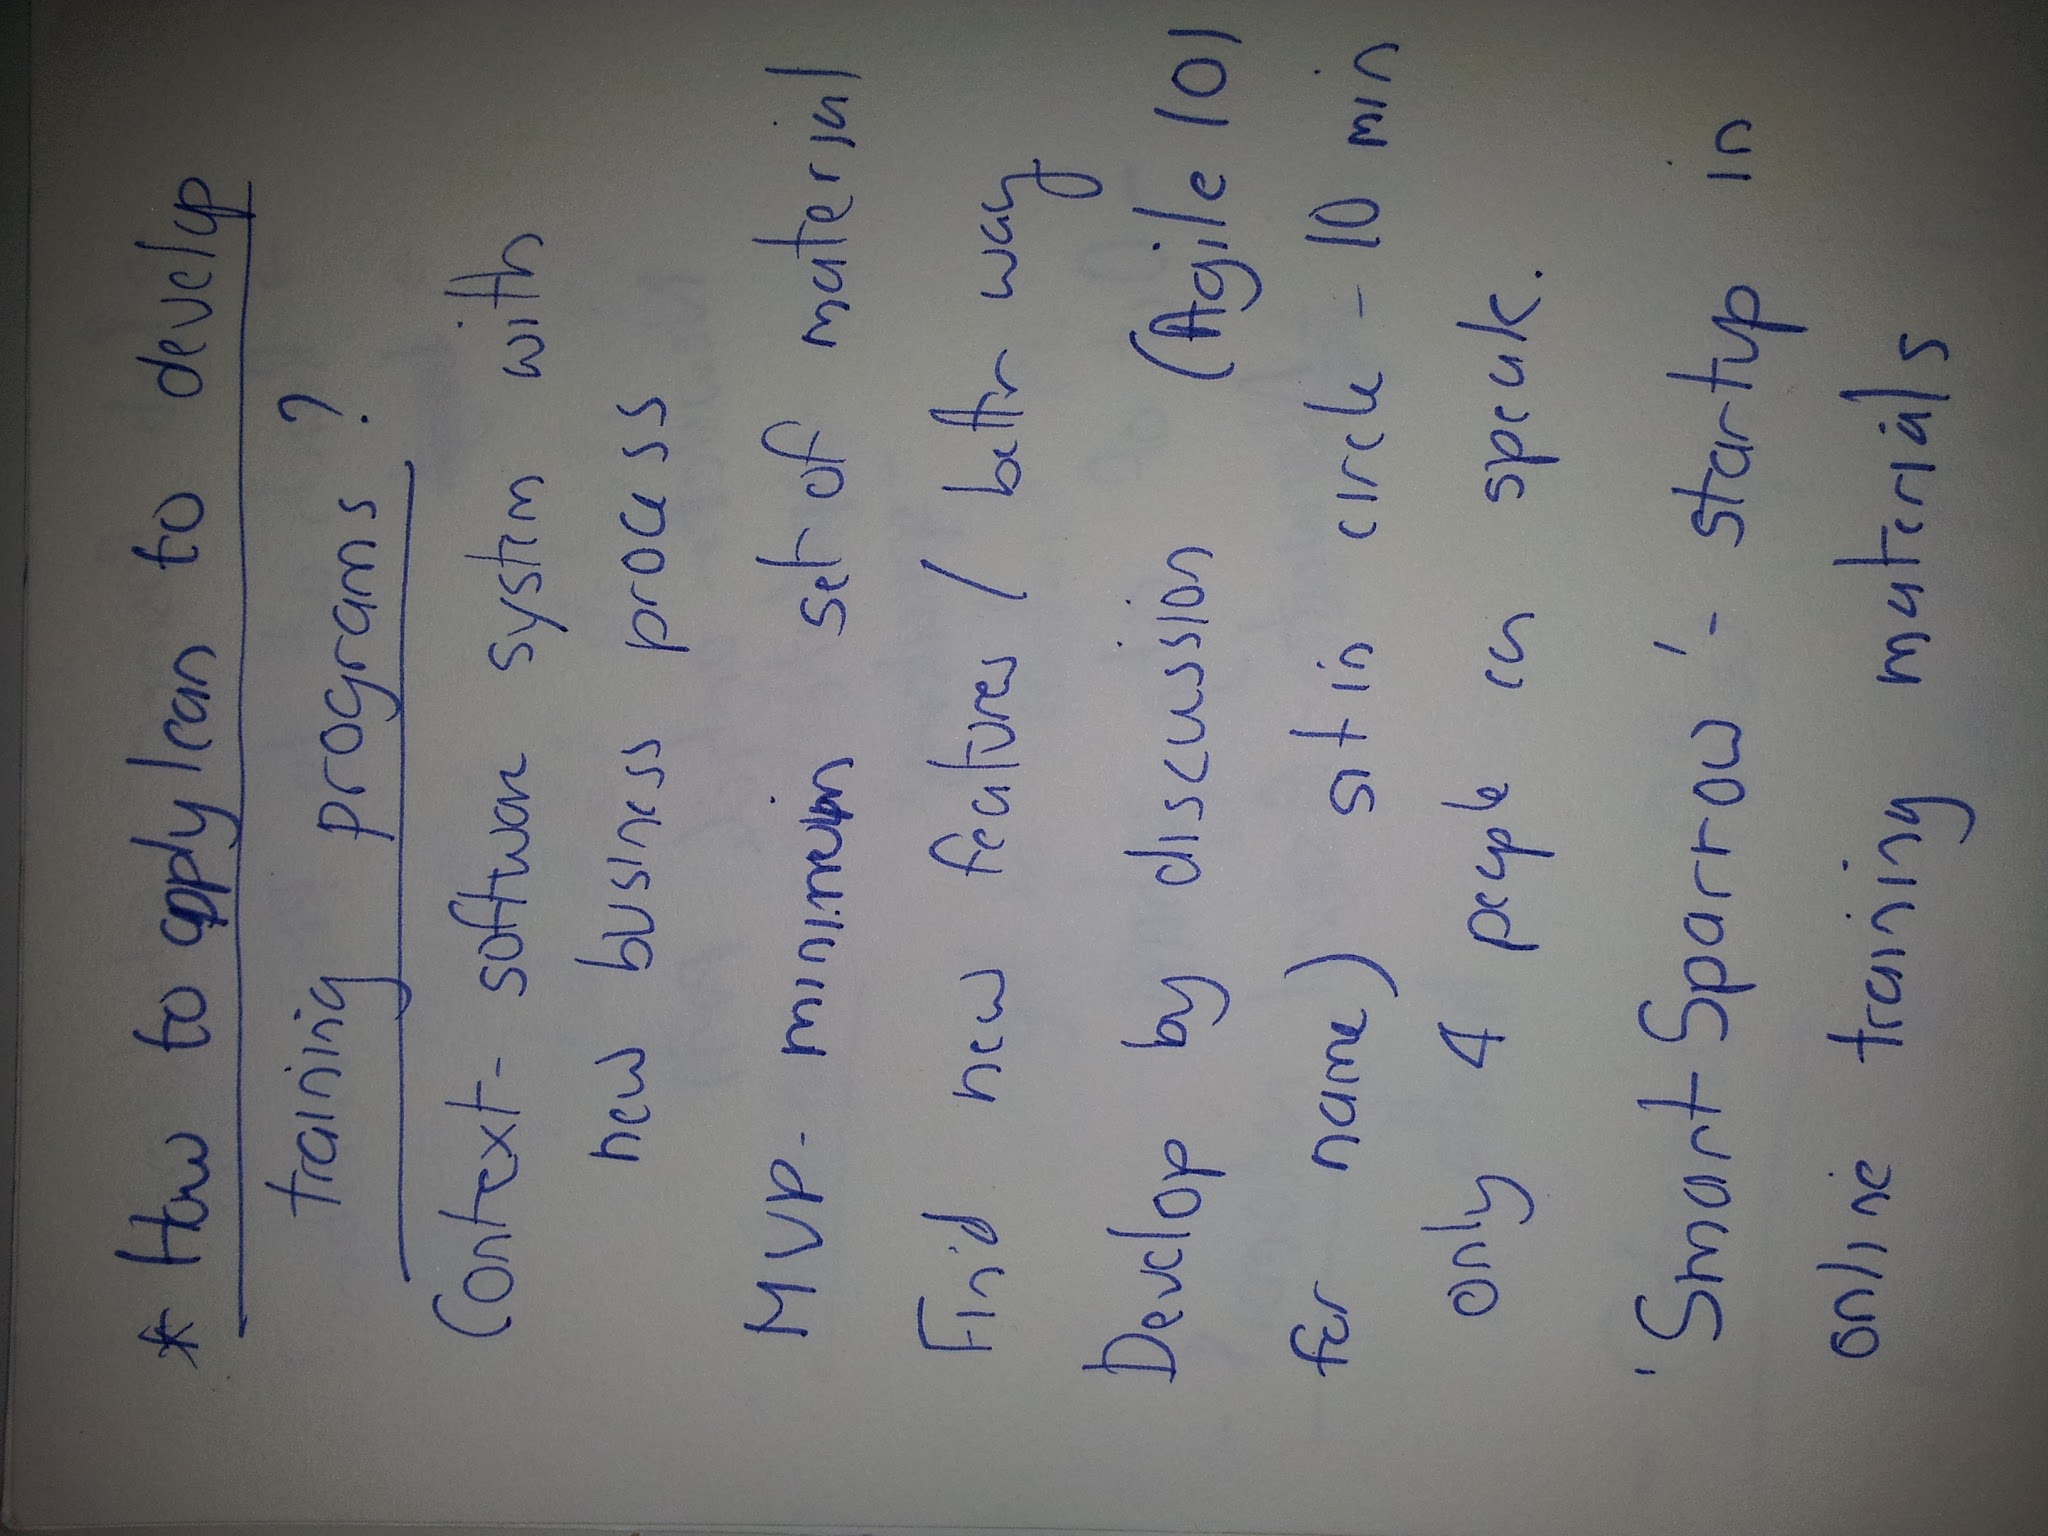 * How to apply lean to develop
training programs ?
Context - software system with
new business process
MVP - minimum set of material
Find new features / better way
Develop by discussion (Agile 101
for name) sit in circle - 10 min
only 4 people can speak.
'Smart Sparrow' - startup in
online training materials